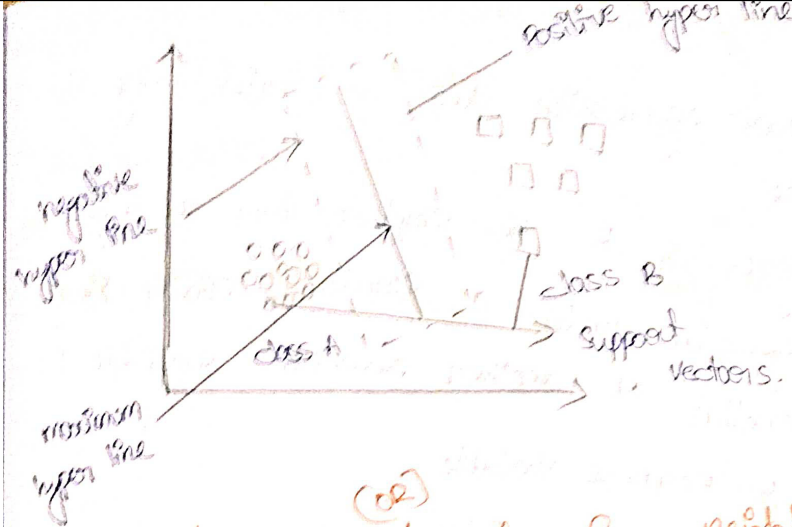 positive hyper line
negative
hyper line
class B
Support
vectors.
class A
maximum
hyper line
(OR)